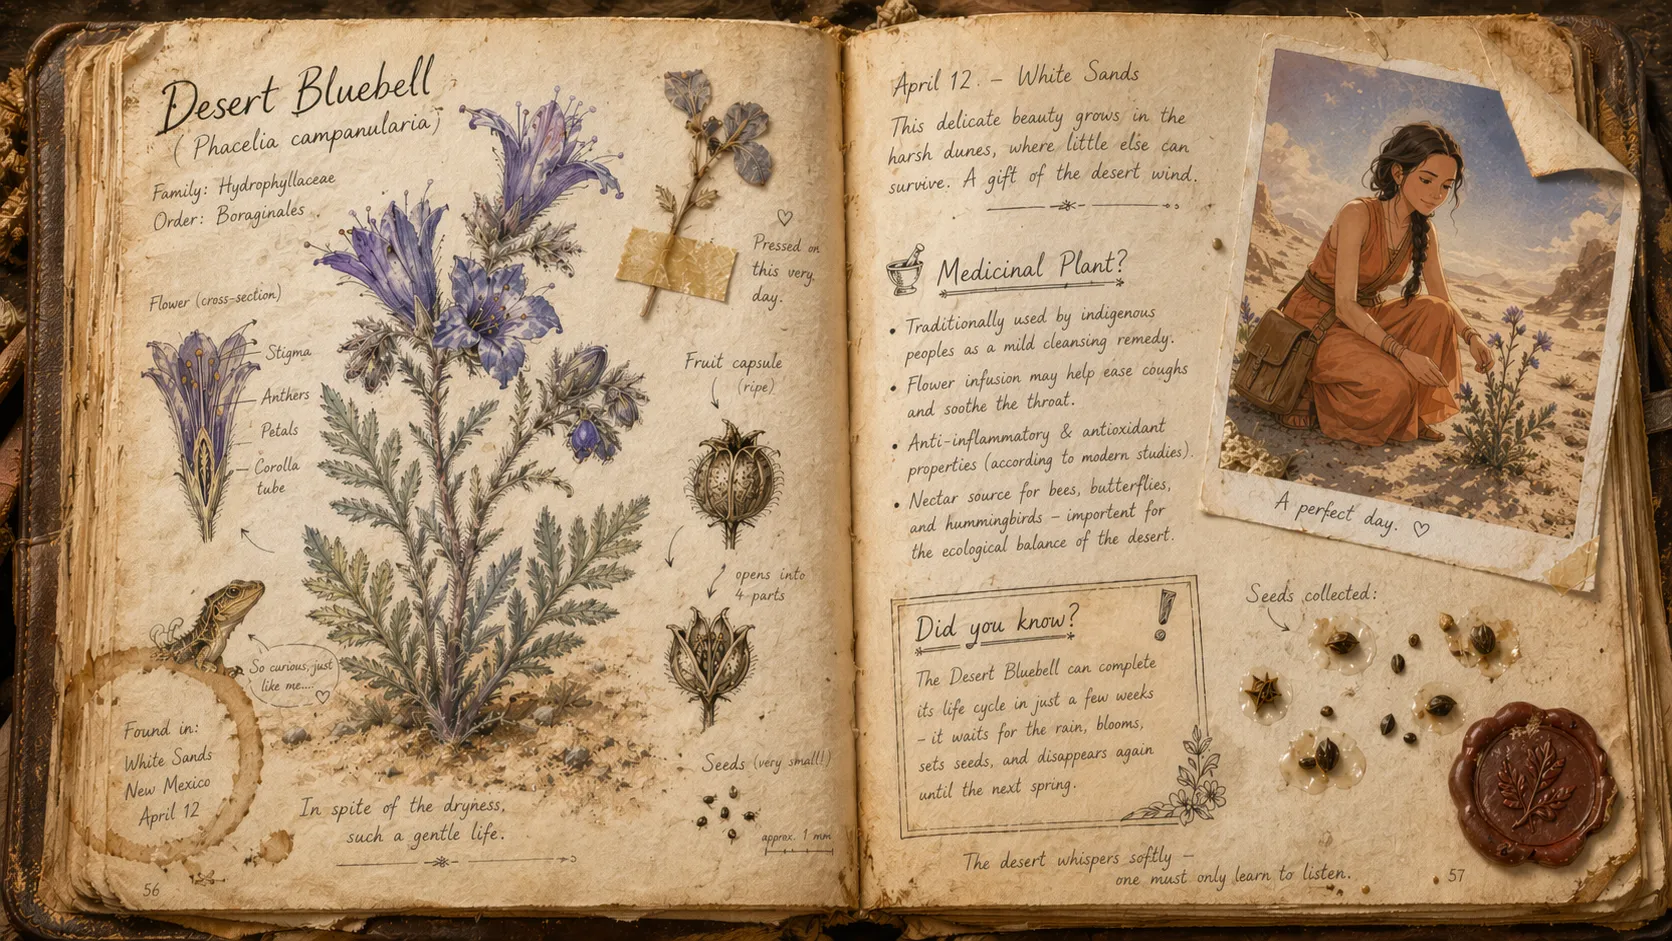 Desert Bluebell
(Phacelia campanularia)
Family: Hydrophyllaceae
Order: Boraginales
Flower (cross-section)
Stigma
Anthers
Petals
Corolla
tube
So curious, just
like me....♡
Found in:
White Sands
New Mexico
April 12
In spite of the dryness,
such a gentle life.
56
♡
Pressed on
this very
day.
Fruit capsule
(ripe)
opens into
4 parts
Seeds (very small!)
approx. 1 mm
April 12 – White Sands
This delicate beauty grows in the
harsh dunes, where little else can
survive. A gift of the desert wind.
Medicinal Plant?
• Traditionally used by indigenous
peoples as a mild cleansing remedy.
• Flower infusion may help ease coughs
and soothe the throat.
• Anti-inflammatory & antioxidant
properties (according to modern studies).
• Nectar source for bees, butterflies,
and hummingbirds – importent for
the ecological balance of the desert.
Did you know? !
The Desert Bluebell can complete
its life cycle in just a few weeks
– it waits for the rain, blooms,
sets seeds, and disappears again
until the next spring.
The desert whispers softly –
one must only learn to listen.
A perfect day. ♡
Seeds collected:
57